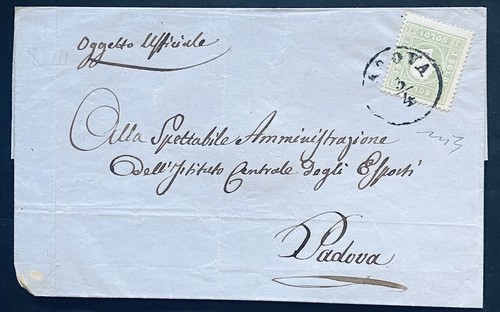 Oggetto Ufficiale
PADOVA
SOLDI
Alla Spettabile Amministrazione
dell'Istituto Centrale degli Esposti
Padova